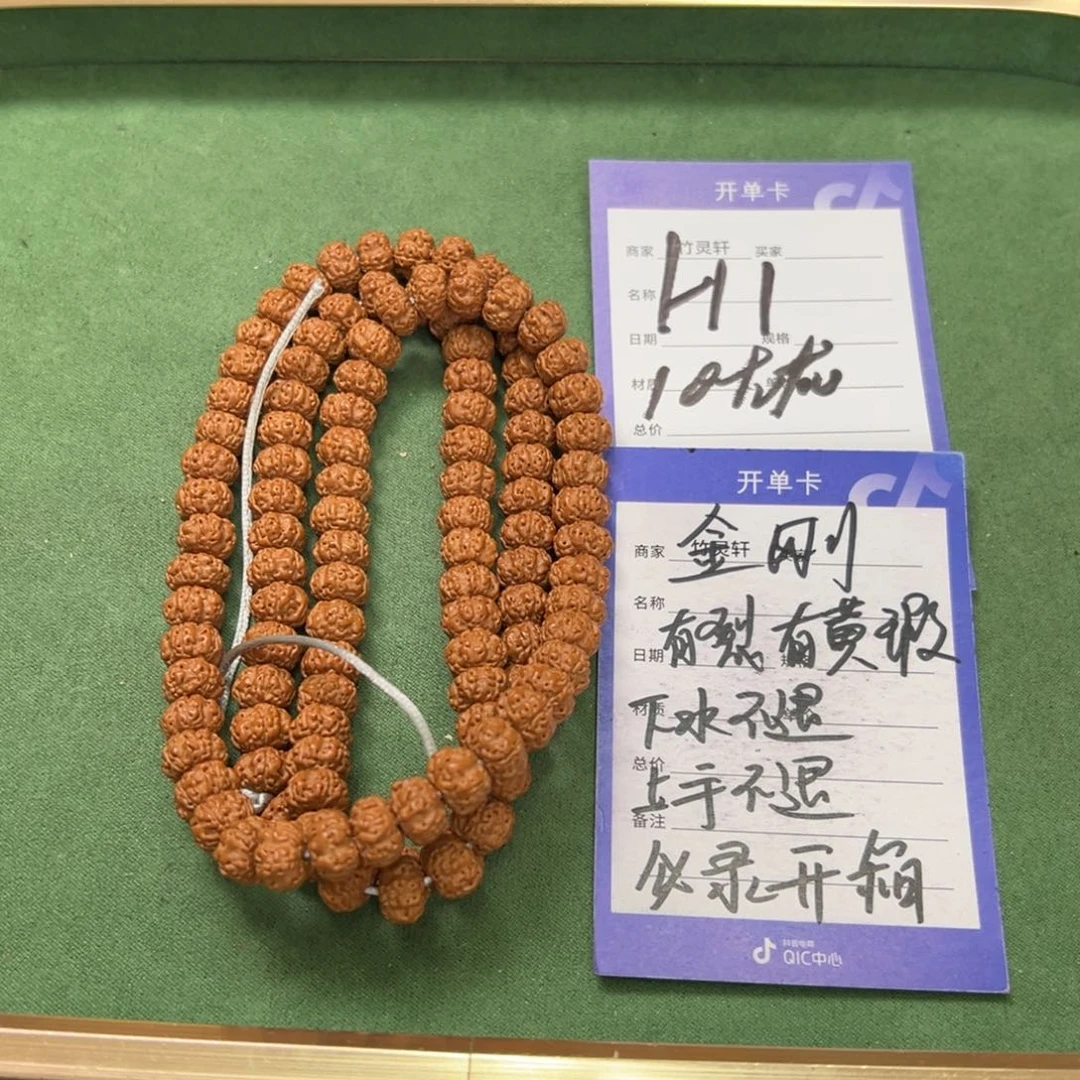 开单卡
商家 竹灵轩 买家
名称
H1
日期 规格
材质
总价
开单卡
金刚
商家 竹灵轩
名称
有裂有黄瑕
日期 规格
材质
下水不退
总价
上手不退
备注
必录开箱
抖音电商
QIC中心